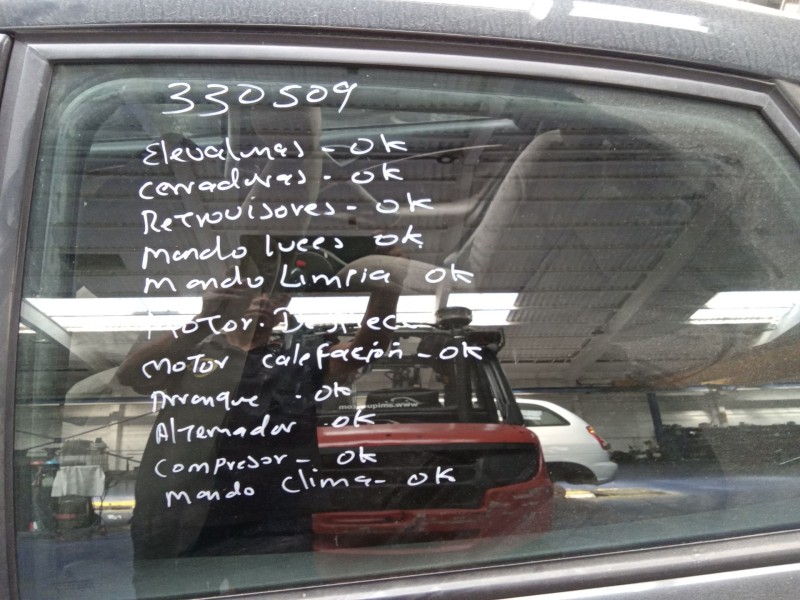 330509
Elevalunas - OK
cerraduras - OK
Retrovisores - OK
Mando luces OK
Mando Limpia OK
Motor.
Motor calefacción - OK
Arranque . OK
Alternador . OK
Compresor - OK
Mando Clima - OK